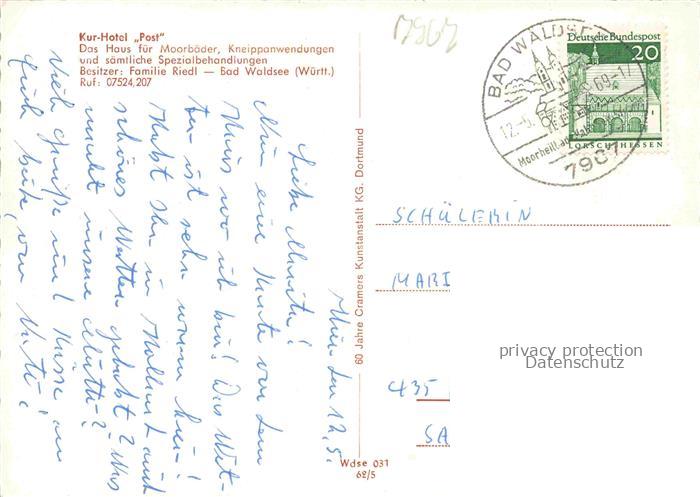 7967
Kur-Hotel „Post"
Das Haus für Moorbäder, Kneippanwendungen
und sämtliche Spezialbehandlungen
Besitzer: Familie Riedl — Bad Waldsee (Württ.)
Ruf: 07524,207
den 12.5.
Liebe !
Nun eine Karte von dem
Haus wo ich bin! Das Wet-
ter ist sehr warm hier!
Habt Ihr in auch
schönes Wetter gehabt? Was
macht unsere Mutti?
Viele Grüße und Küsse an
Euch beide, von Vati!
60 Jahre Cramers Kunstanstalt KG. Dortmund
Wdse 031
62/5
BAD WALDSEE
12.-5.69-17
Moorheilbad
7967
Deutsche Bundespost
20
LORSCH/HESSEN
SCHÜLERIN
MARI
435
SA
privacy protection
Datenschutz